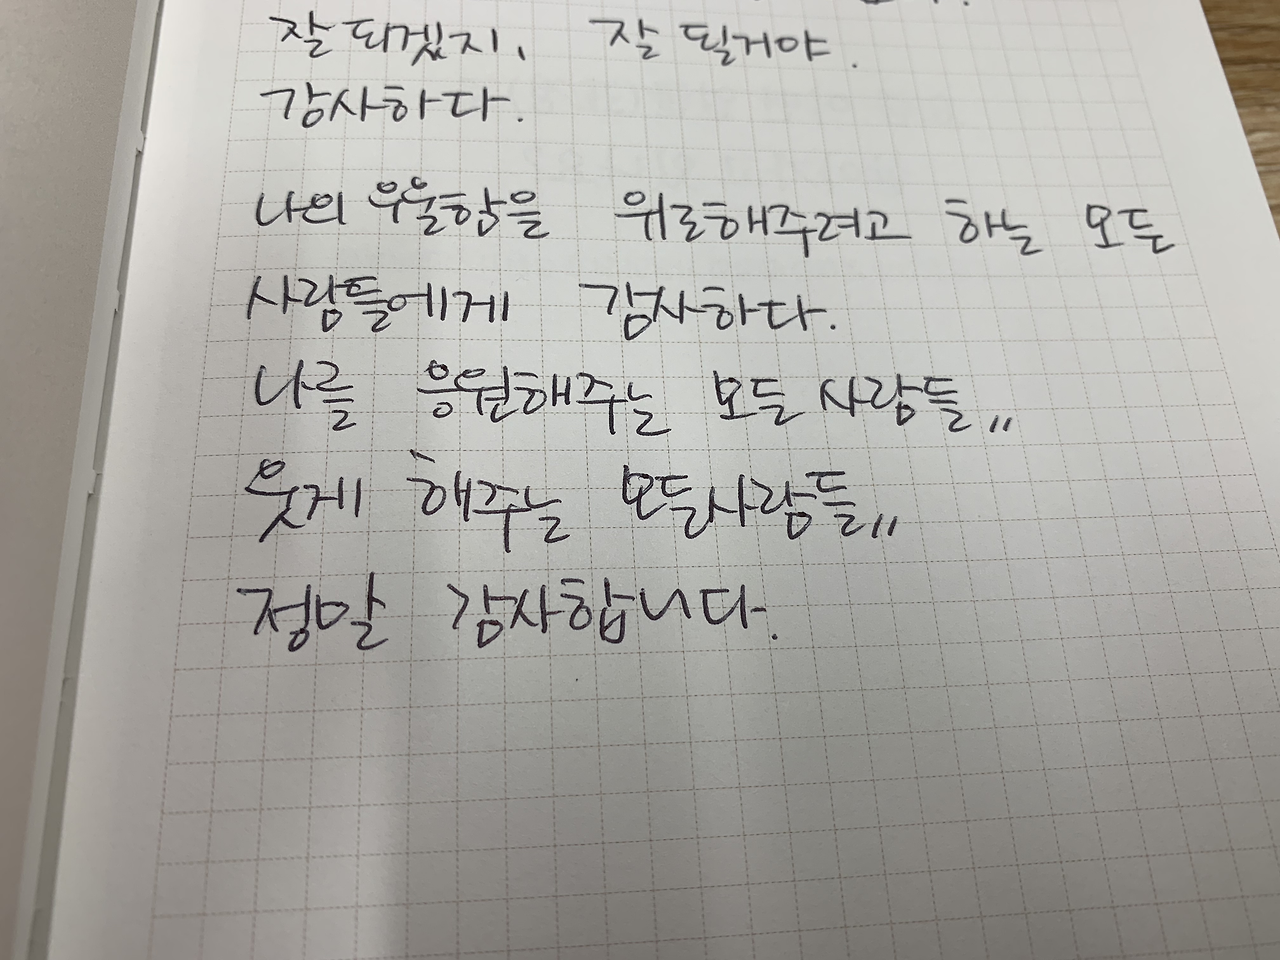 잘 되겠지, 잘 될거야.
감사하다.
나의 우울함을 위로해주려고 하는 모든
사람들에게 감사하다.
나를 응원해주는 모든 사람들,,
웃게 해주는 모든사람들,,
정말 감사합니다.